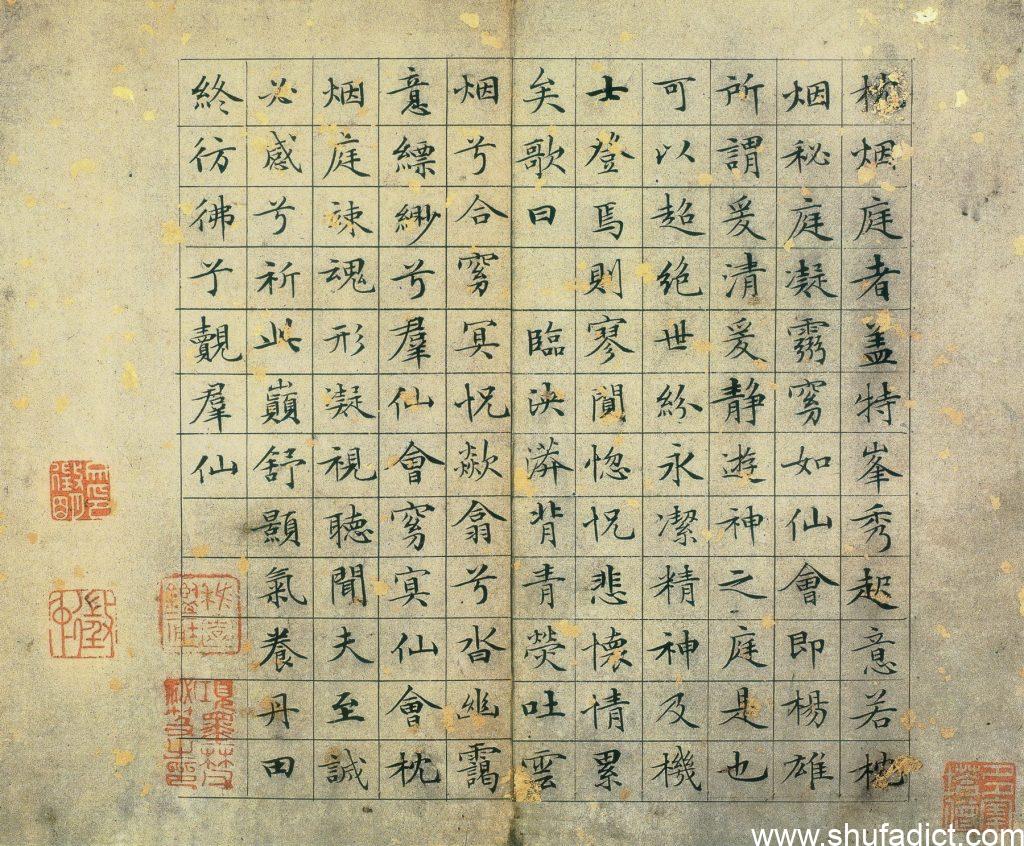 枕烟庭者盖特峯秀起意若枕
烟秘庭凝靈窈如仙會即楊雄
所謂爰清爰静遊神之庭是也
可以超絶世紛永潔精神及機
士登焉則寥闃惚怳悲懷情累
矣歌曰 臨泱漭背青熒吐雲
烟兮合窈冥怳歘翕兮沓幽靄
意縹緲兮羣仙會窈冥仙會枕
烟庭竦魂形凝視聽聞夫至誠
必感兮祈此巔舒顥氣養丹田
終彷彿兮覿羣仙
www.shufadict.com